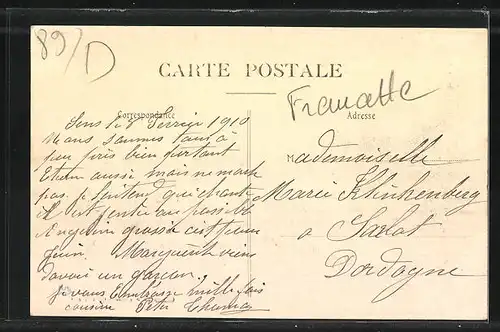 89/D
CARTE POSTALE
Correspondance
Adresse
Sens le 8 Fevrier 1910
nous sommes tous à
peu près bien portant
Etienne aussi mais ne marche
pas. je l'entend qui chante
il est gentil au possible
Angeline grossit
juin. Marguerite vient
d'avoir un garçon.
je vous Embrasse mille fois
cousine
Francette
Mademoiselle
Marie Klinkenberg
a Sarlat
Dordogne